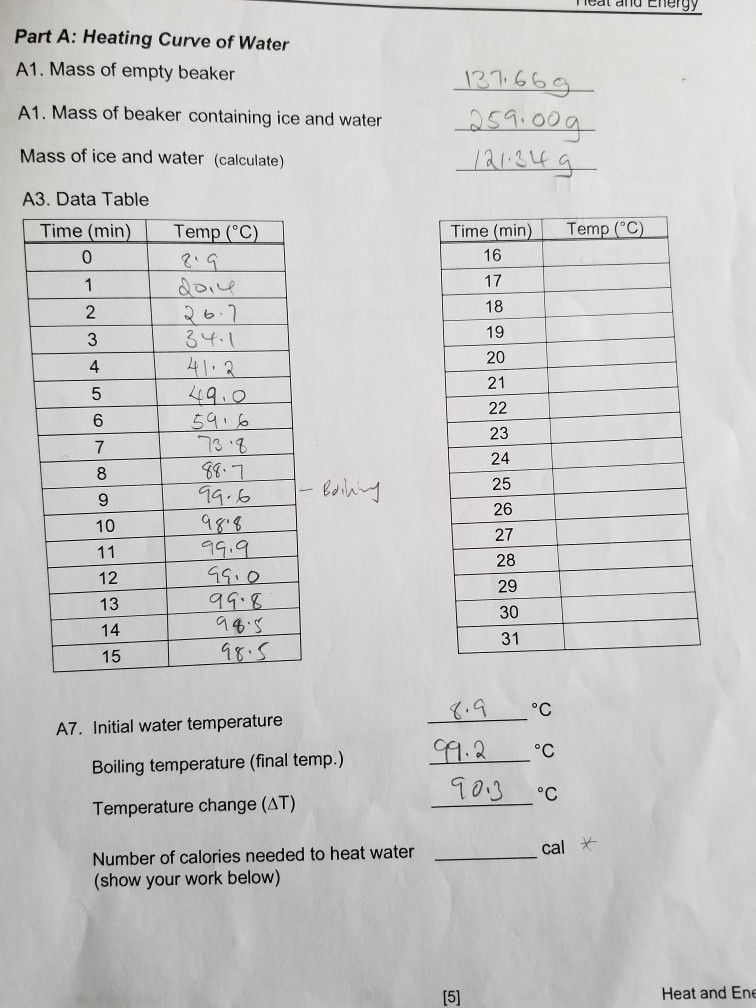 Heat and Energy
Part A: Heating Curve of Water
A1. Mass of empty beaker 137.66g
A1. Mass of beaker containing ice and water 259.00g
Mass of ice and water (calculate) 121.34 g
A3. Data Table
Time (min) Temp (°C)
0 8.9
1 20.4
2 26.7
3 34.1
4 41.2
5 49.0
6 59.6
7 73.8
8 88.7
9 99.6 - Boiling
10 98.8
11 99.9
12 99.0
13 99.8
14 98.5
15 98.5
Time (min) Temp (°C)
16
17
18
19
20
21
22
23
24
25
26
27
28
29
30
31
A7. Initial water temperature 8.9 °C
Boiling temperature (final temp.) 99.2 °C
Temperature change (ΔT) 90.3 °C
Number of calories needed to heat water cal *
(show your work below)
[5] Heat and Ene